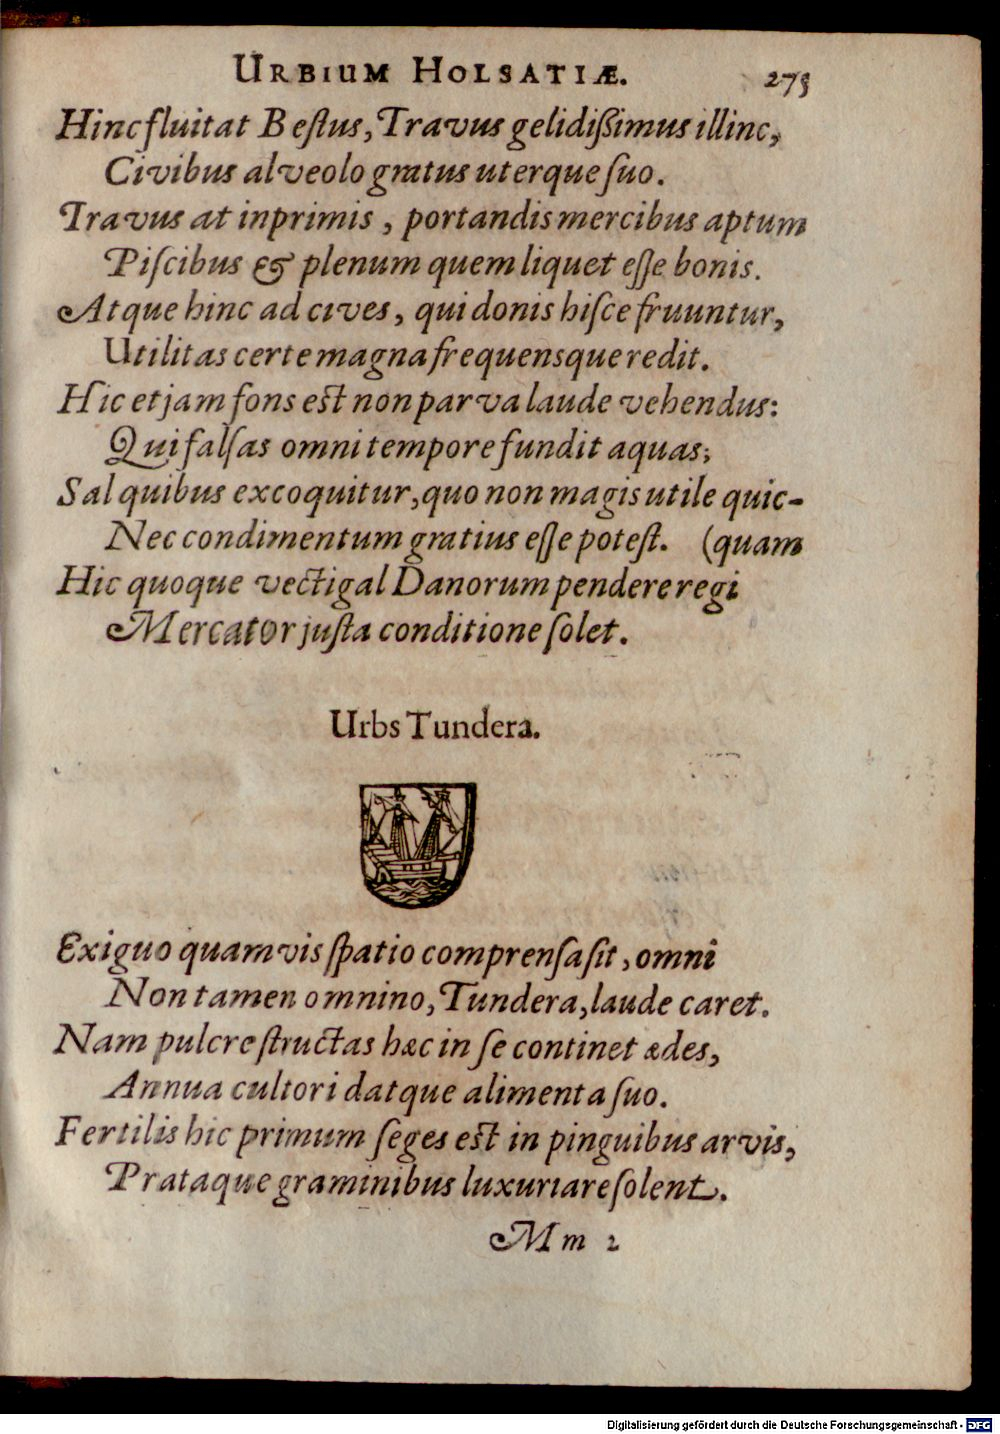 URBIUM HOLSATIÆ. 275
Hinc fluitat Beſtus, Travus gelidißimus illinc,
Civibus alveolo gratus uterque ſuo.
Travus at inprimis, portandis mercibus aptum
Piſcibus & plenum quem liquet eſſe bonis.
Atque hinc ad cives, qui donis hiſce fruuntur,
Utilitas certe magna frequensque redit.
Hic etjam fons est non parva laude vehendus:
Qui falſas omni tempore fundit aquas;
Sal quibus excoquitur, quo non magis utile quic-
Nec condimentum gratius eſſe poteſt. (quam
Hic quoque vectigal Danorum pendere regi
Mercator juſta conditione ſolet.
Urbs Tundera.
Exiguo quamvis ſpatio comprenſa ſit, omni
Non tamen omnino, Tundera, laude caret.
Nam pulcre ſtructas hæc in ſe continet ædes,
Annua cultori datque alimenta ſuo.
Fertilis hic primum ſeges est in pinguibus arvis,
Prataque graminibus luxuriare ſolent.
Mm 2
Digitalisierung gefördert durch die Deutsche Forschungsgemeinschaft - DFG